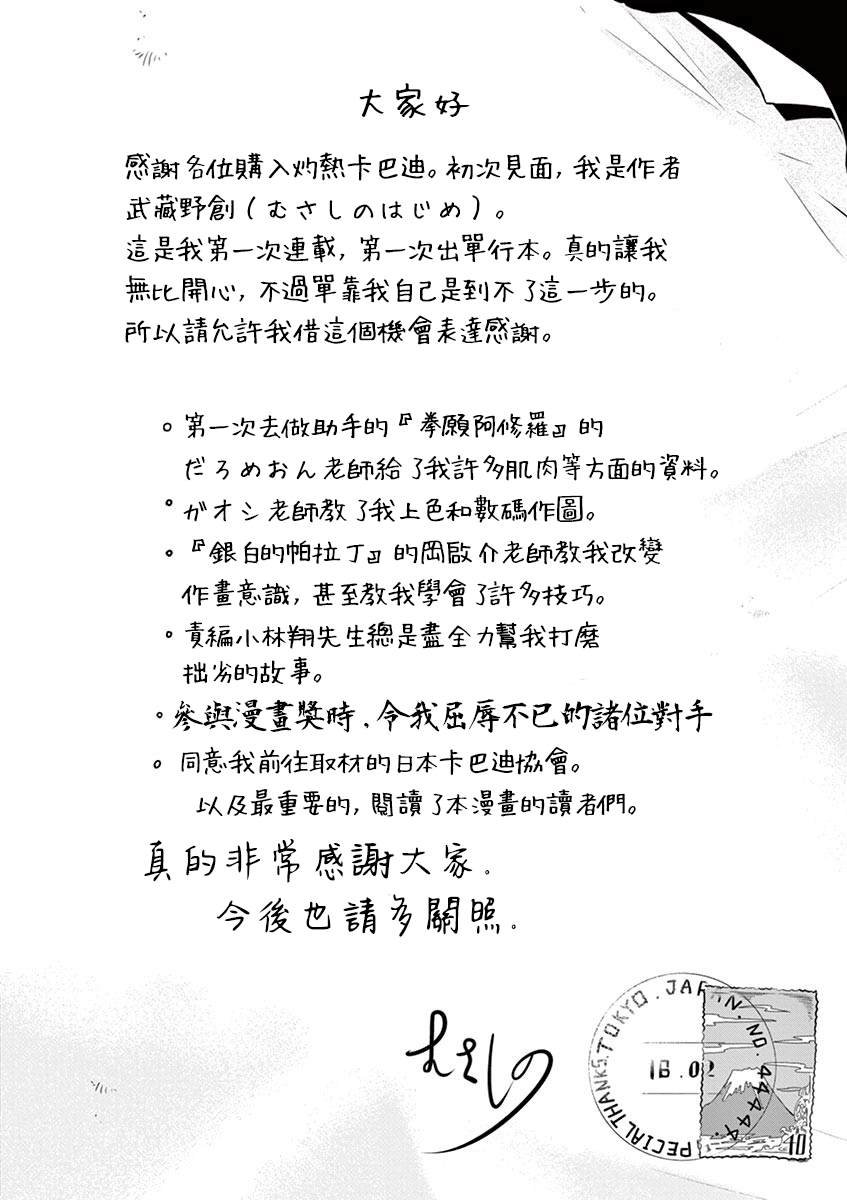 大家好
感謝各位購入灼熱卡巴迪。初次見面，我是作者
武藏野創（むさしのはじめ）。
這是我第一次連載，第一次出單行本。真的讓我
無比開心，不過單靠我自己是到不了這一步的。
所以請允許我借這個機會表達感謝。
。第一次去做助手的『拳願阿修羅』的
だろめおん老師給了我許多肌肉等方面的資料。
。ガオシ老師教了我上色和數碼作圖。
。『銀白的帕拉丁』的岡啟介老師教我改變
作畫意識，甚至教我學會了許多技巧。
。責編小林翔先生總是盡全力幫我打磨
拙劣的故事。
。參與漫畫獎時、令我屈辱不已的諸位對手
。同意我前往取材的日本卡巴迪協會。
以及最重要的，閱讀了本漫畫的讀者們。
真的非常感謝大家。
今後也請多關照。
むさしの
SPECIAL THANKS. TOKYO. JAPAN. NO. 44444.
16.02
10